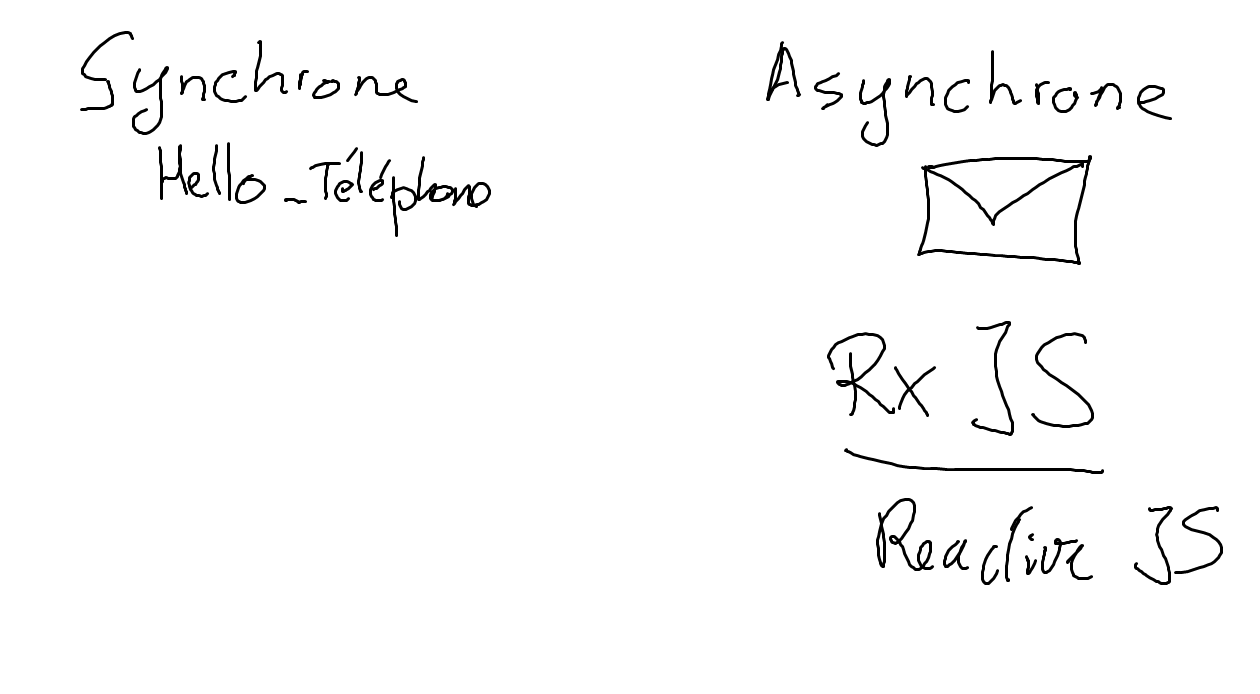 Synchrone
Hello _ Téléphone
Asynchrone
Rx JS
Reactive JS